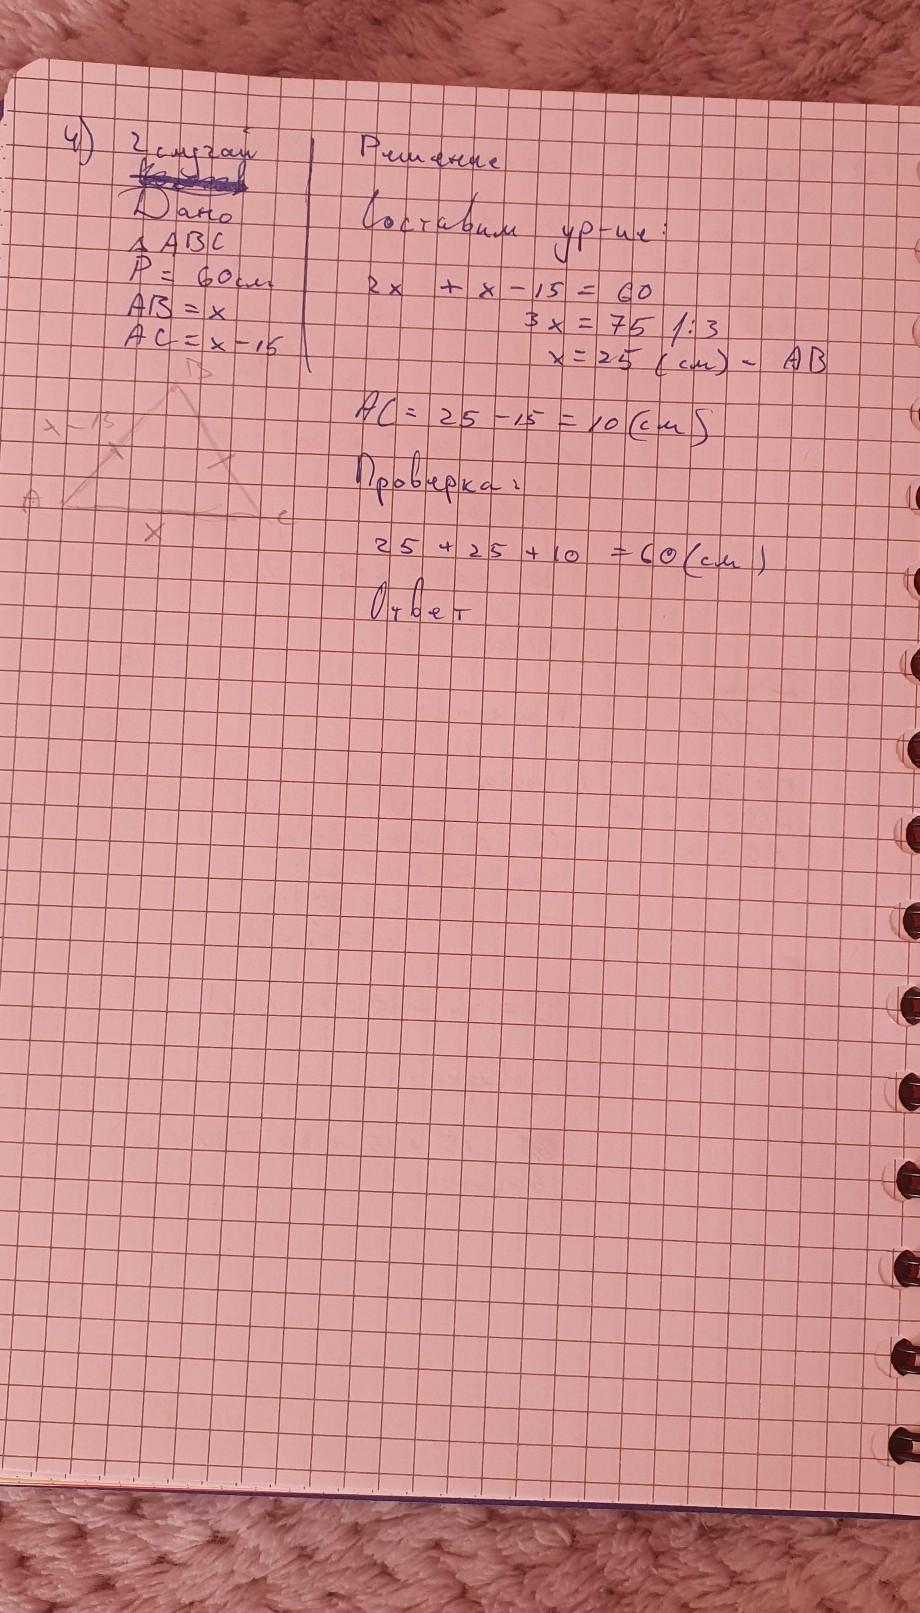 4) 2 случай
Дано
△ ABC
P = 60см
AB = x
AC = x - 15
B
x - 15
A
C
x
Решение
Составим ур-ие:
2x + x - 15 = 60
3x = 75 /: 3
x = 25 (см) - AB
AC = 25 - 15 = 10 (см)
Проверка:
25 + 25 + 10 = 60 (см)
Ответ